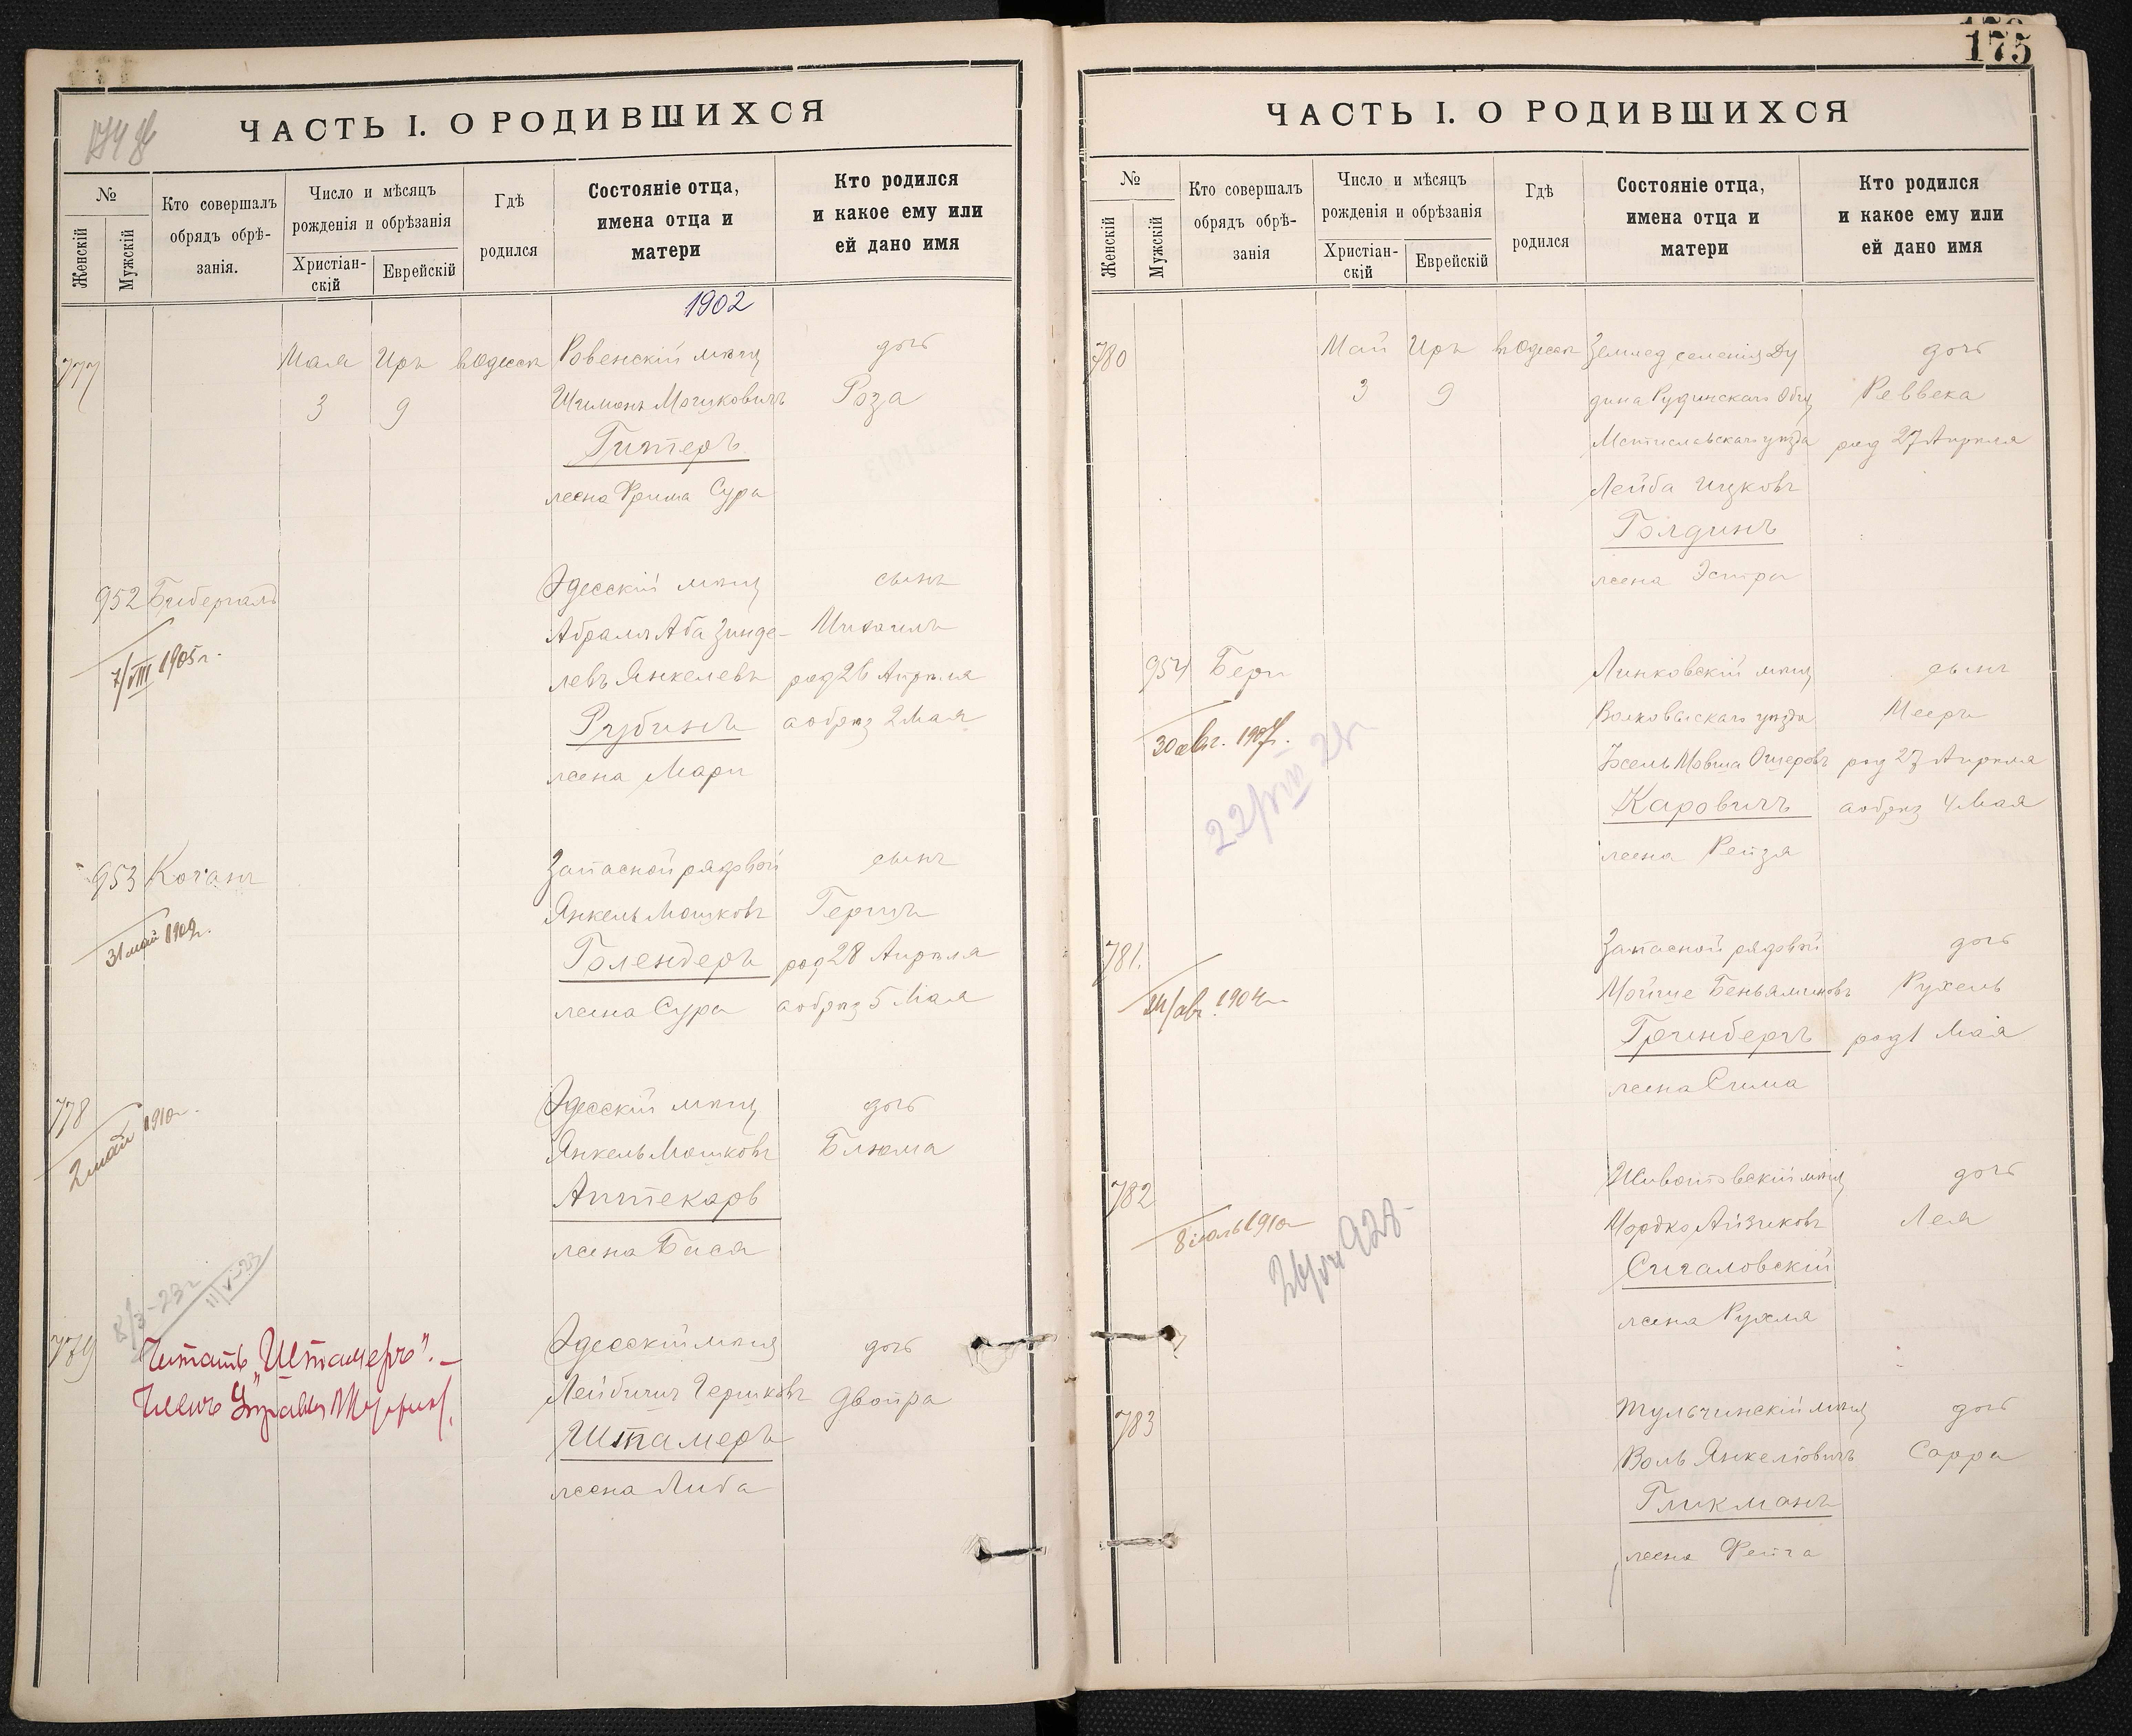 ЧАСТЬ I. О РОДИВШИХСЯ
№
Женскій
Мужскій
Кто совершалъ
обрядъ обрѣ-
занія.
Число и мѣсяцъ
рожденія и обрѣзанія
Христіан-
скій
Еврейскій
Гдѣ
родился
Состояніе отца,
имена отца и
матери
Кто родился
и какое ему или
ей дано имя
1902
777
Мая Иръ в Одессѣ Ровенскій мѣщ дочь
3 9 Шимонъ Мошковичъ Роза
Гитеръ
жена Фрима Сура
952 Одесскій мѣщ сынъ
7/VIII 1905г. Абрамъ Аба Зинде-
левъ Янкелевъ род 26 Апрѣля
Рубинъ а обрѣз 2 Мая
жена Мари
953 Коганъ Запасной рядовой сынъ
31 май 1909г. Янкель Мошковъ Гершъ
Голендеръ род 28 Апрѣля
жена Сура а обрѣз 5 Мая
778 Одесскій мѣщ дочь
2 май 1910г. Янкель Мошковъ Блюма
Аптекарь
жена Бася
779 Одесскій мѣщ дочь
Читать „Штамеръ". –
Членъ Управы
Гершковъ Двойра
Штамеръ
жена Либа
175
ЧАСТЬ I. О РОДИВШИХСЯ
№
Женскій
Мужскій
Кто совершалъ
обрядъ обрѣ-
занія
Число и мѣсяцъ
рожденія и обрѣзанія
Христіан-
скій
Еврейскій
Гдѣ
родился
Состояніе отца,
имена отца и
матери
Кто родился
и какое ему или
ей дано имя
780 Май Иръ в Одессѣ Землед селенія Ду дочь
3 9 Реввека
Мстиславскаго уѣзда род 27 Апрѣля
Лейба Ицковъ
Голдинъ
жена Эстри
954 Бери мѣщ сынъ
Волковыскаго уѣзда Мееръ
Мовша Ошеровъ род 27 Апрѣля
Каровичъ а обрѣз 4 Мая
жена Рейзя
781. Запасной рядовой дочь
Мойше Беньяминовъ Рухель
Гринбергъ род 1 Мая
жена Сима
782 Животовскій мѣщ дочь
8 іюль 1910 Мордко Айзиковъ Лея
Сигаловскій
жена Рухля
783 Тульчинскій мѣщ дочь
Воль Янкеліовичъ Сарра
Гликманъ
жена Фейга